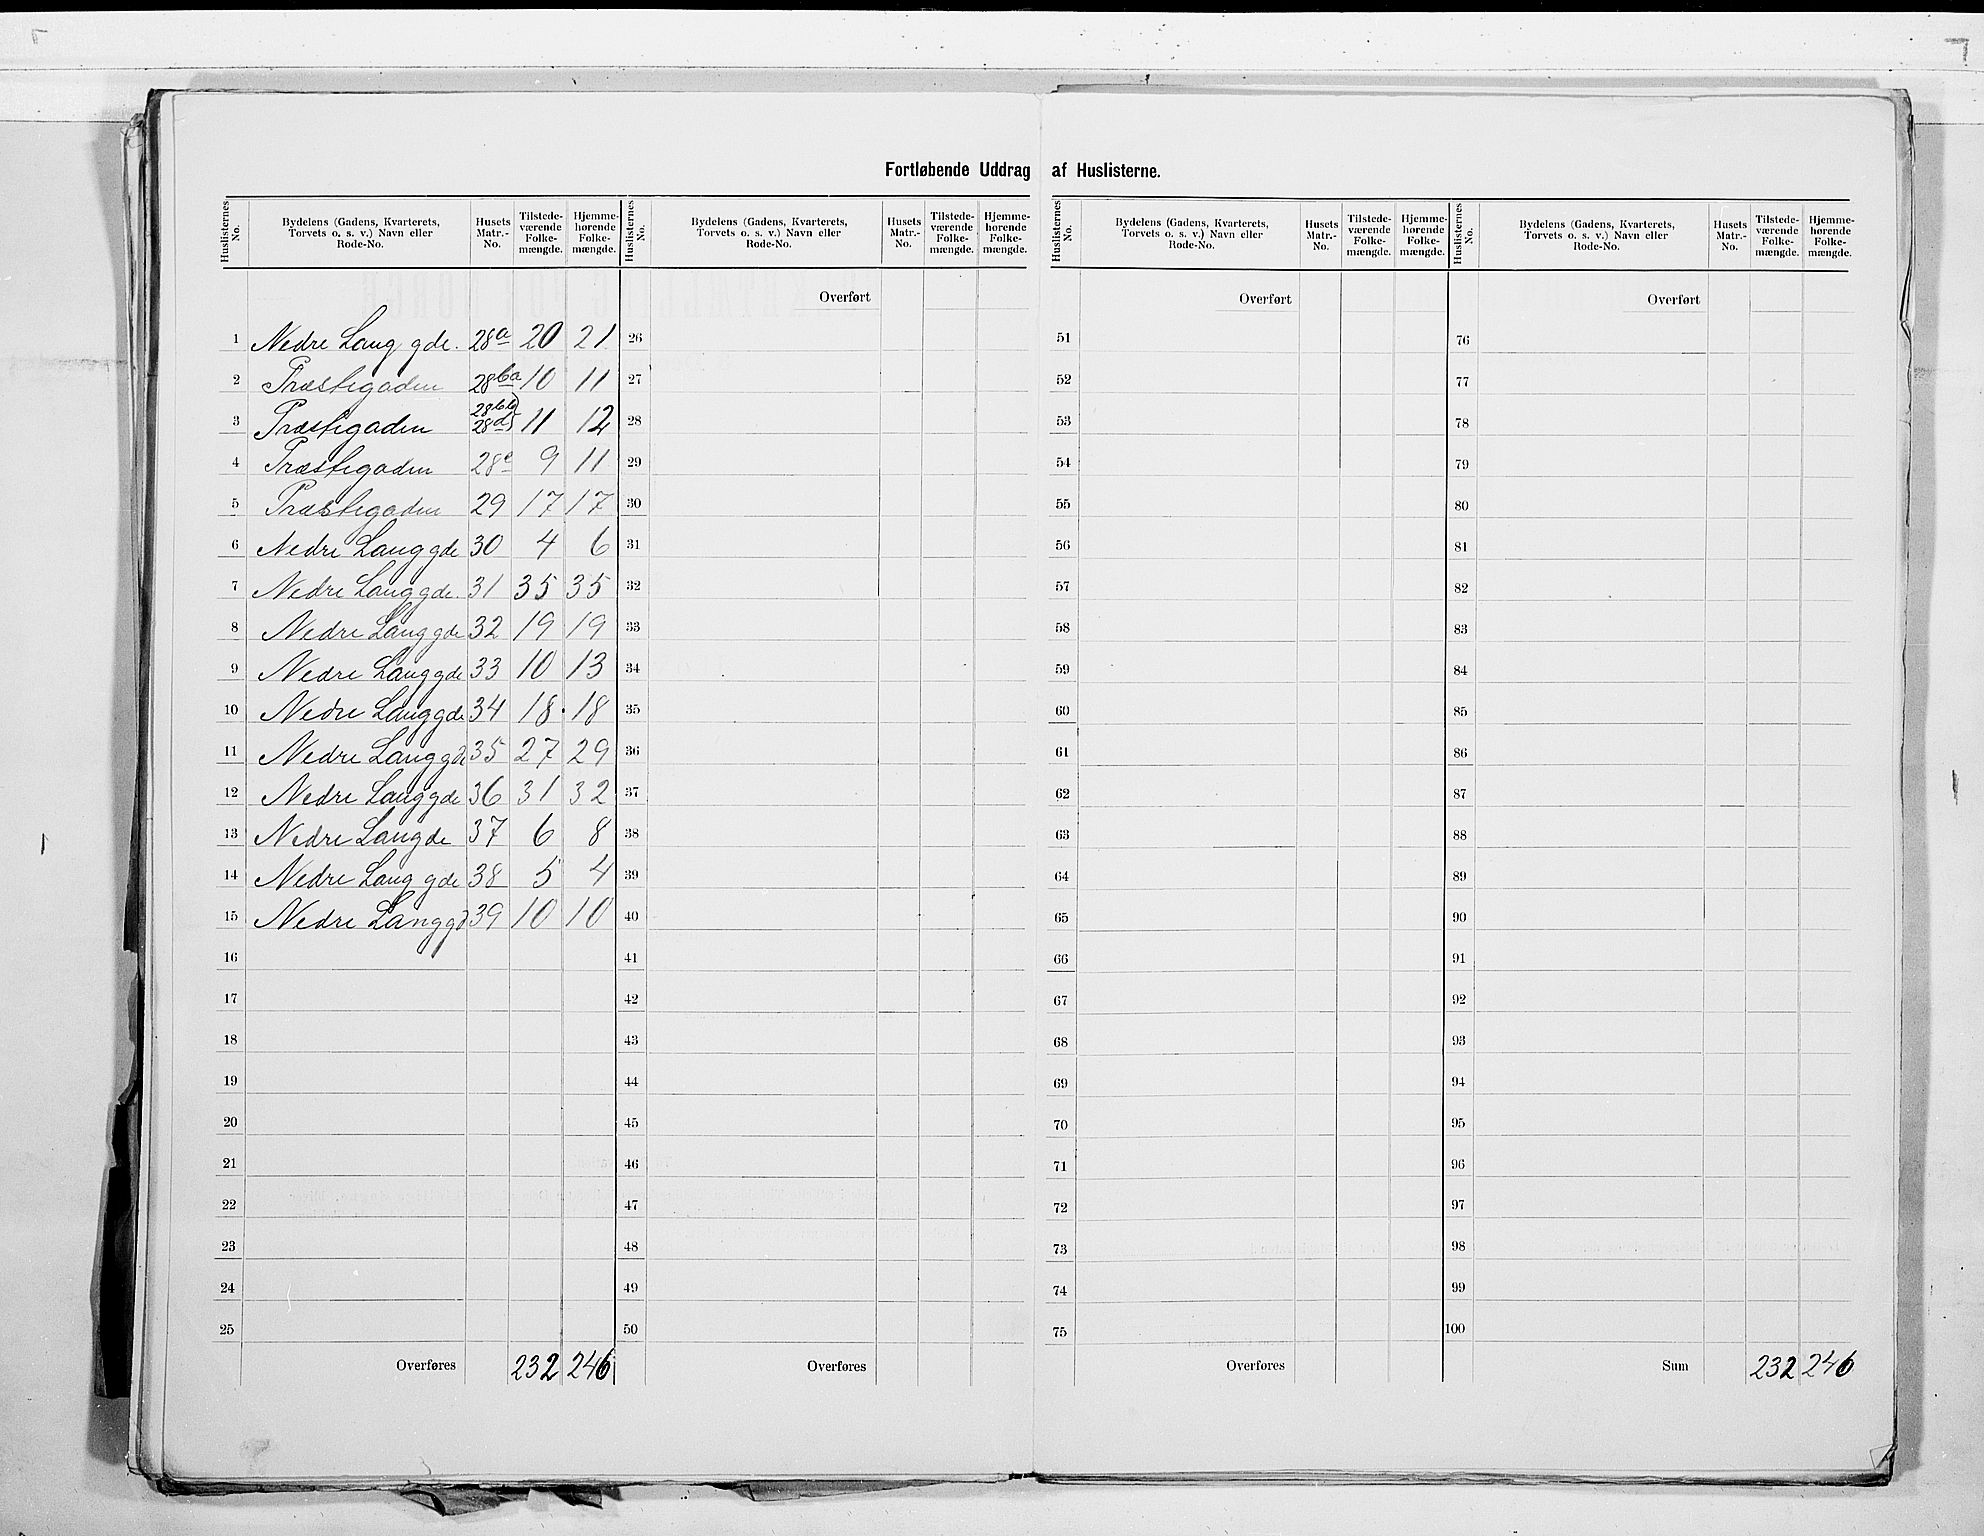 Fortløbende Uddrag af Huslisterne.
Huslisternes No. | Bydelens (Gadens, Kvarterets, Torvets o. s. v.) Navn eller Rode-No. | Husets Matr.-No. | Tilstedeværende Folkemængde. | Hjemmehørende Folkemængde. | Huslisternes No. | Bydelens (Gadens, Kvarterets, Torvets o. s. v.) Navn eller Rode-No. | Husets Matr.-No. | Tilstedeværende Folkemængde. | Hjemmehørende Folkemængde. | Huslisternes No. | Bydelens (Gadens, Kvarterets, Torvets o. s. v.) Navn eller Rode-No. | Husets Matr.-No. | Tilstedeværende Folkemængde. | Hjemmehørende Folkemængde. | Huslisternes No. | Bydelens (Gadens, Kvarterets, Torvets o. s. v.) Navn eller Rode-No. | Husets Matr.-No. | Tilstedeværende Folkemængde. | Hjemmehørende Folkemængde.
Overført Overført Overført
1 Nedre Lang gde. 28a 20 21 26 51 76
2 Præstegaden 28ba 10 11 27 52 77
3 Præstegaden 28bb 28d 11 12 28 53 78
4 Præstegaden 28e 9 11 29 54 79
5 Præstegaden 29 17 17 30 55 80
6 Nedre Langgde 30 4 6 31 56 81
7 Nedre Langgde. 31 35 35 32 57 82
8 Nedre Langgde 32 19 19 33 58 83
9 Nedre Langgde 33 10 13 34 59 84
10 Nedre Langgde 34 18 18 35 60 85
11 Nedre Langgd 35 27 29 36 61 86
12 Nedre Langgde 36 31 32 37 62 87
13 Nedre Langde 37 6 8 38 63 88
14 Nedre Lang gde 38 5 4 39 64 89
15 Nedre Langgd 39 10 10 40 65 90
16 41 66 91
17 42 67 92
18 43 68 93
19 44 69 94
20 45 70 95
21 46 71 96
22 47 72 97
23 48 73 98
24 49 74 99
25 50 75 100
Overføres 232 246 Overføres Overføres Sum 232 246